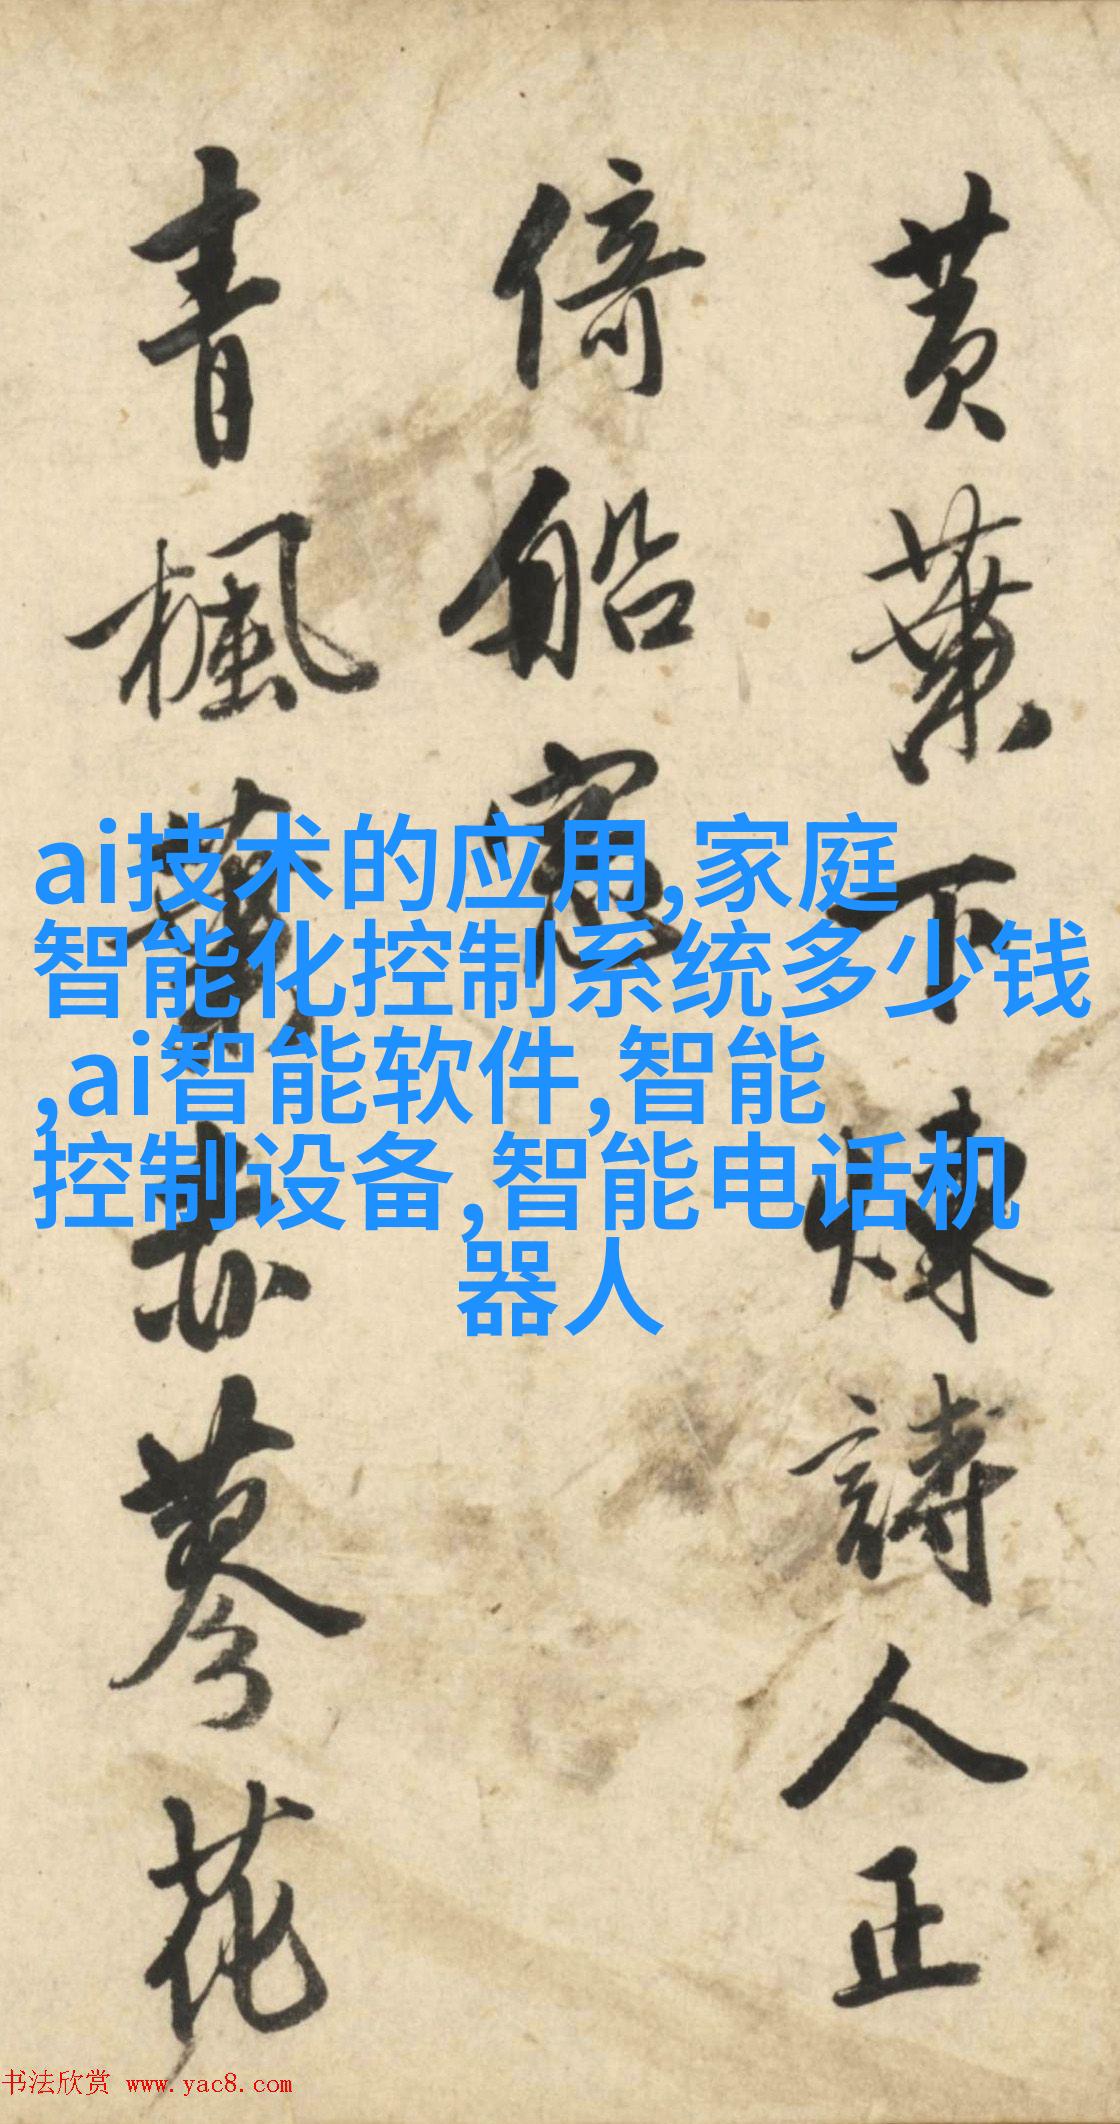 黄葉下煉詩人正
倚船窓
青楓蓼花
ai技术的应用,家庭
智能化控制系统多少钱
,ai智能软件,智能
控制设备,智能电话机
器人
书法欣赏 www.yac8.com